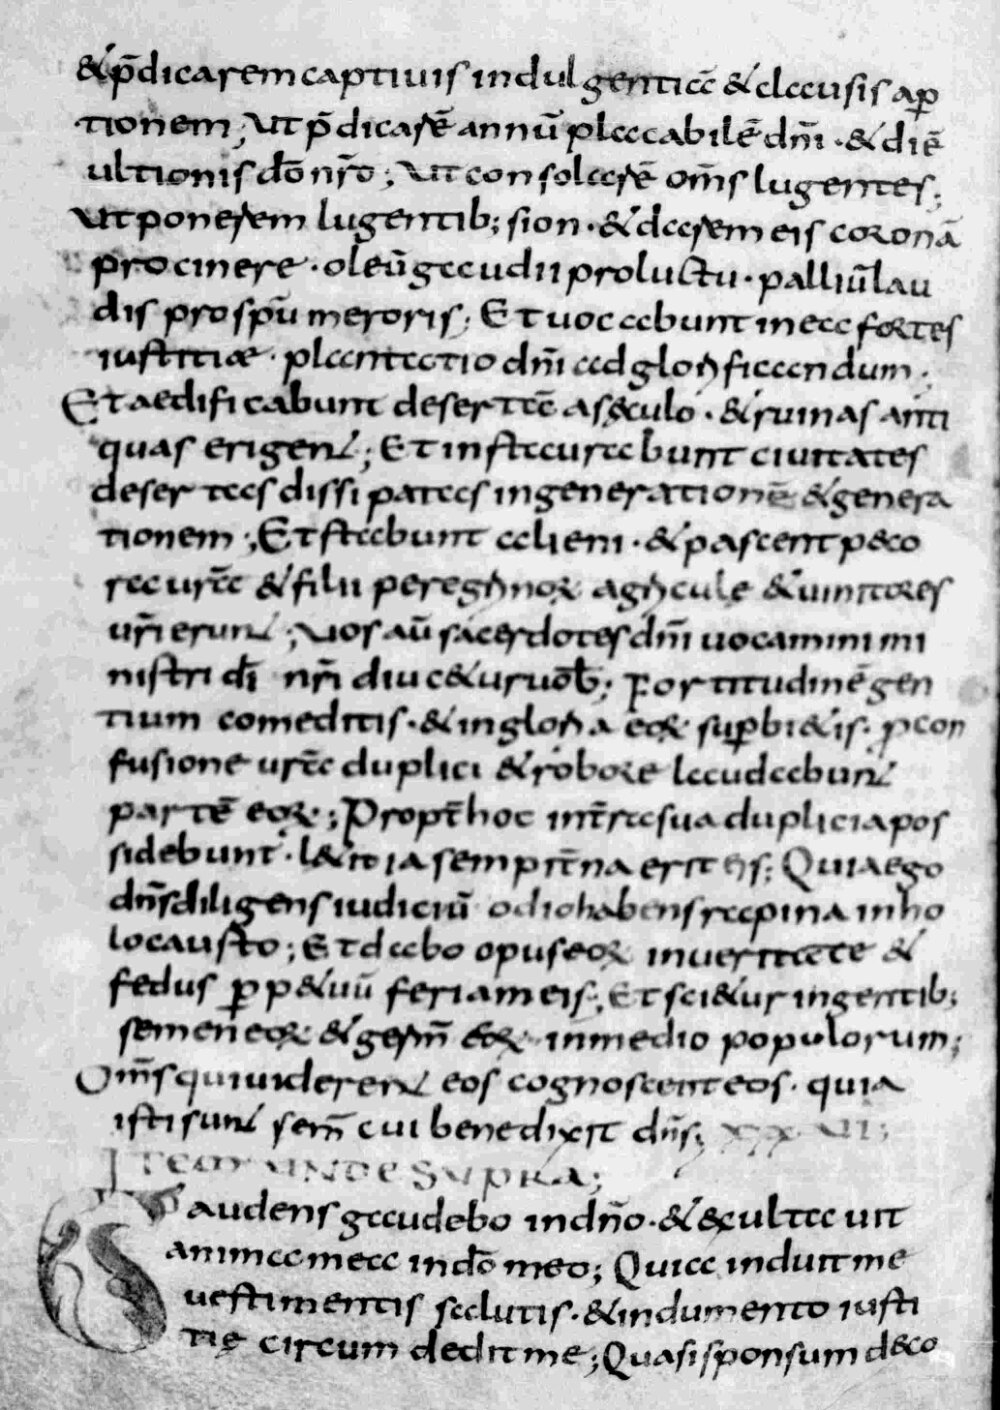 &p̄dicarem captiuis indulgentia &clausis ap
tionem; Ut p̄dicarē annū placabilē dn̄i · &diē
ultionis dō nr̄o; Ut consolarē om̄s lugentes;
Ut ponerem lugentib; sion · &darem eis coronā
pro cinere · oleū gaudii pro luctu · palliū lau
dis pro spū meroris; Et uocabunt in ea fortes
iustitiæ · plantatio dn̄i ad glorificandum ·
Et aedificabunt deserta a sęculo · &ruinas anti
quas erigent; Et instaurabunt ciuitates
desertas dissipatas in generationē &genera
tionem; Et stabunt alieni · &pascent peco
ra urā &filii peregrinoꝝ agricule &uinitores
ur̄i erunt; Uos aū sacerdotes dn̄i uocamini mi
nistri dī nr̄i diuc&ur uob̄; Fortitudinē gen
tium comeditis · &in gloria eoꝝ superbi&is · p con
fusione urā duplici &robore laudabunt
partē eoꝝ; Propt̄ hoc in tr̄a sua duplicia pos
sidebunt · l&itia sempit̄na erit eis; Quia ego
dn̄s diligens iudiciū odio habens rapina in ho
locausto; Et dabo opus eoꝝ in ueritate &
fedus ꝑp&uū feriam eis; Et sci&ur in gentib;
semen eoꝝ &germ̄ eoꝝ in medio populorum;
Om̄s qui uiderent eos cognoscent eos · quia
isti sunt sem̄ cui benedixit dn̄s; XXXVII;
ITEM UNDE SUPRA;
Gaudens gaudebo in dn̄o · &exultauit
anima mea in dō meo; Quia induit me
uestimentis salutis · &indumento iusti
tię circumdedit me; Quasi sponsum deco